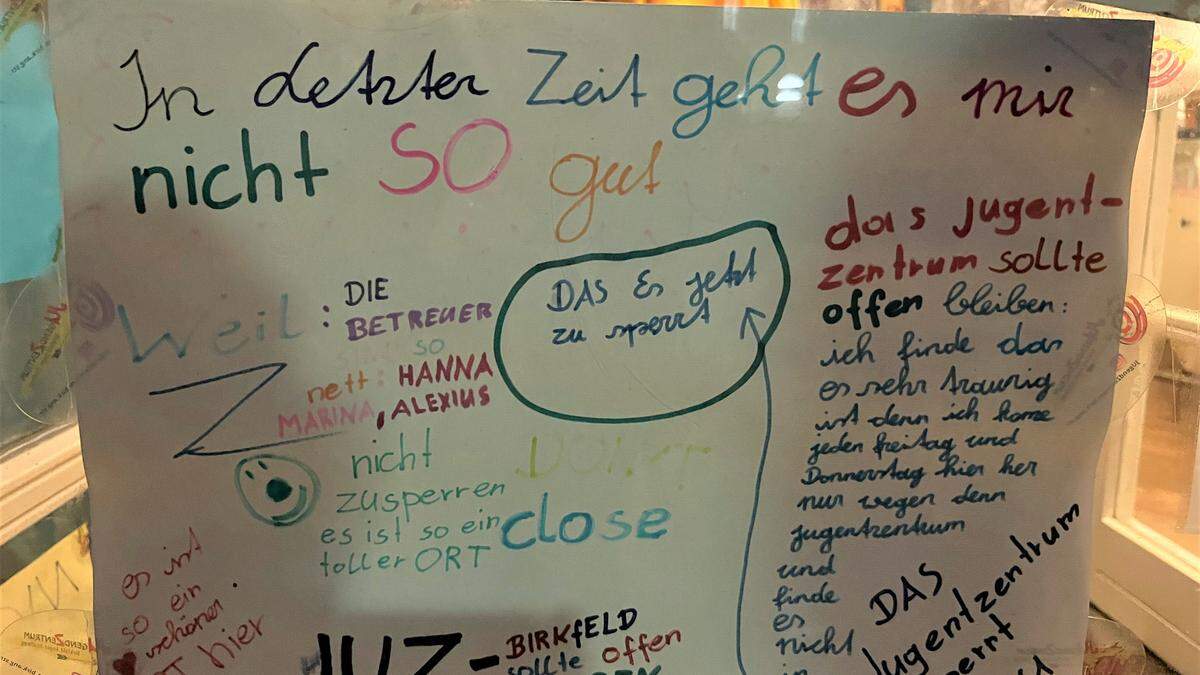 In letzter Zeit geht es mir
nicht SO gut
Weil : DIE
BETREUER
so
nett: HANNA
MARINA, ALEXIUS
DAS Es jetzt
zu sperrt
das jugent-
zentrum sollte
offen bleiben:
ich finde das
es sehr traurig
ist denn ich kome
jeden freitag und
Donnerstag hier her
nur wegen denn
jugentzentrum
und
finde
es
nicht
in
nicht
zusperren
es ist so ein
toller ORT
close
es ist
so ein
schöner
hier
JUZ-BIRKfELD
sollte offen
DAS
Jugentzentrum